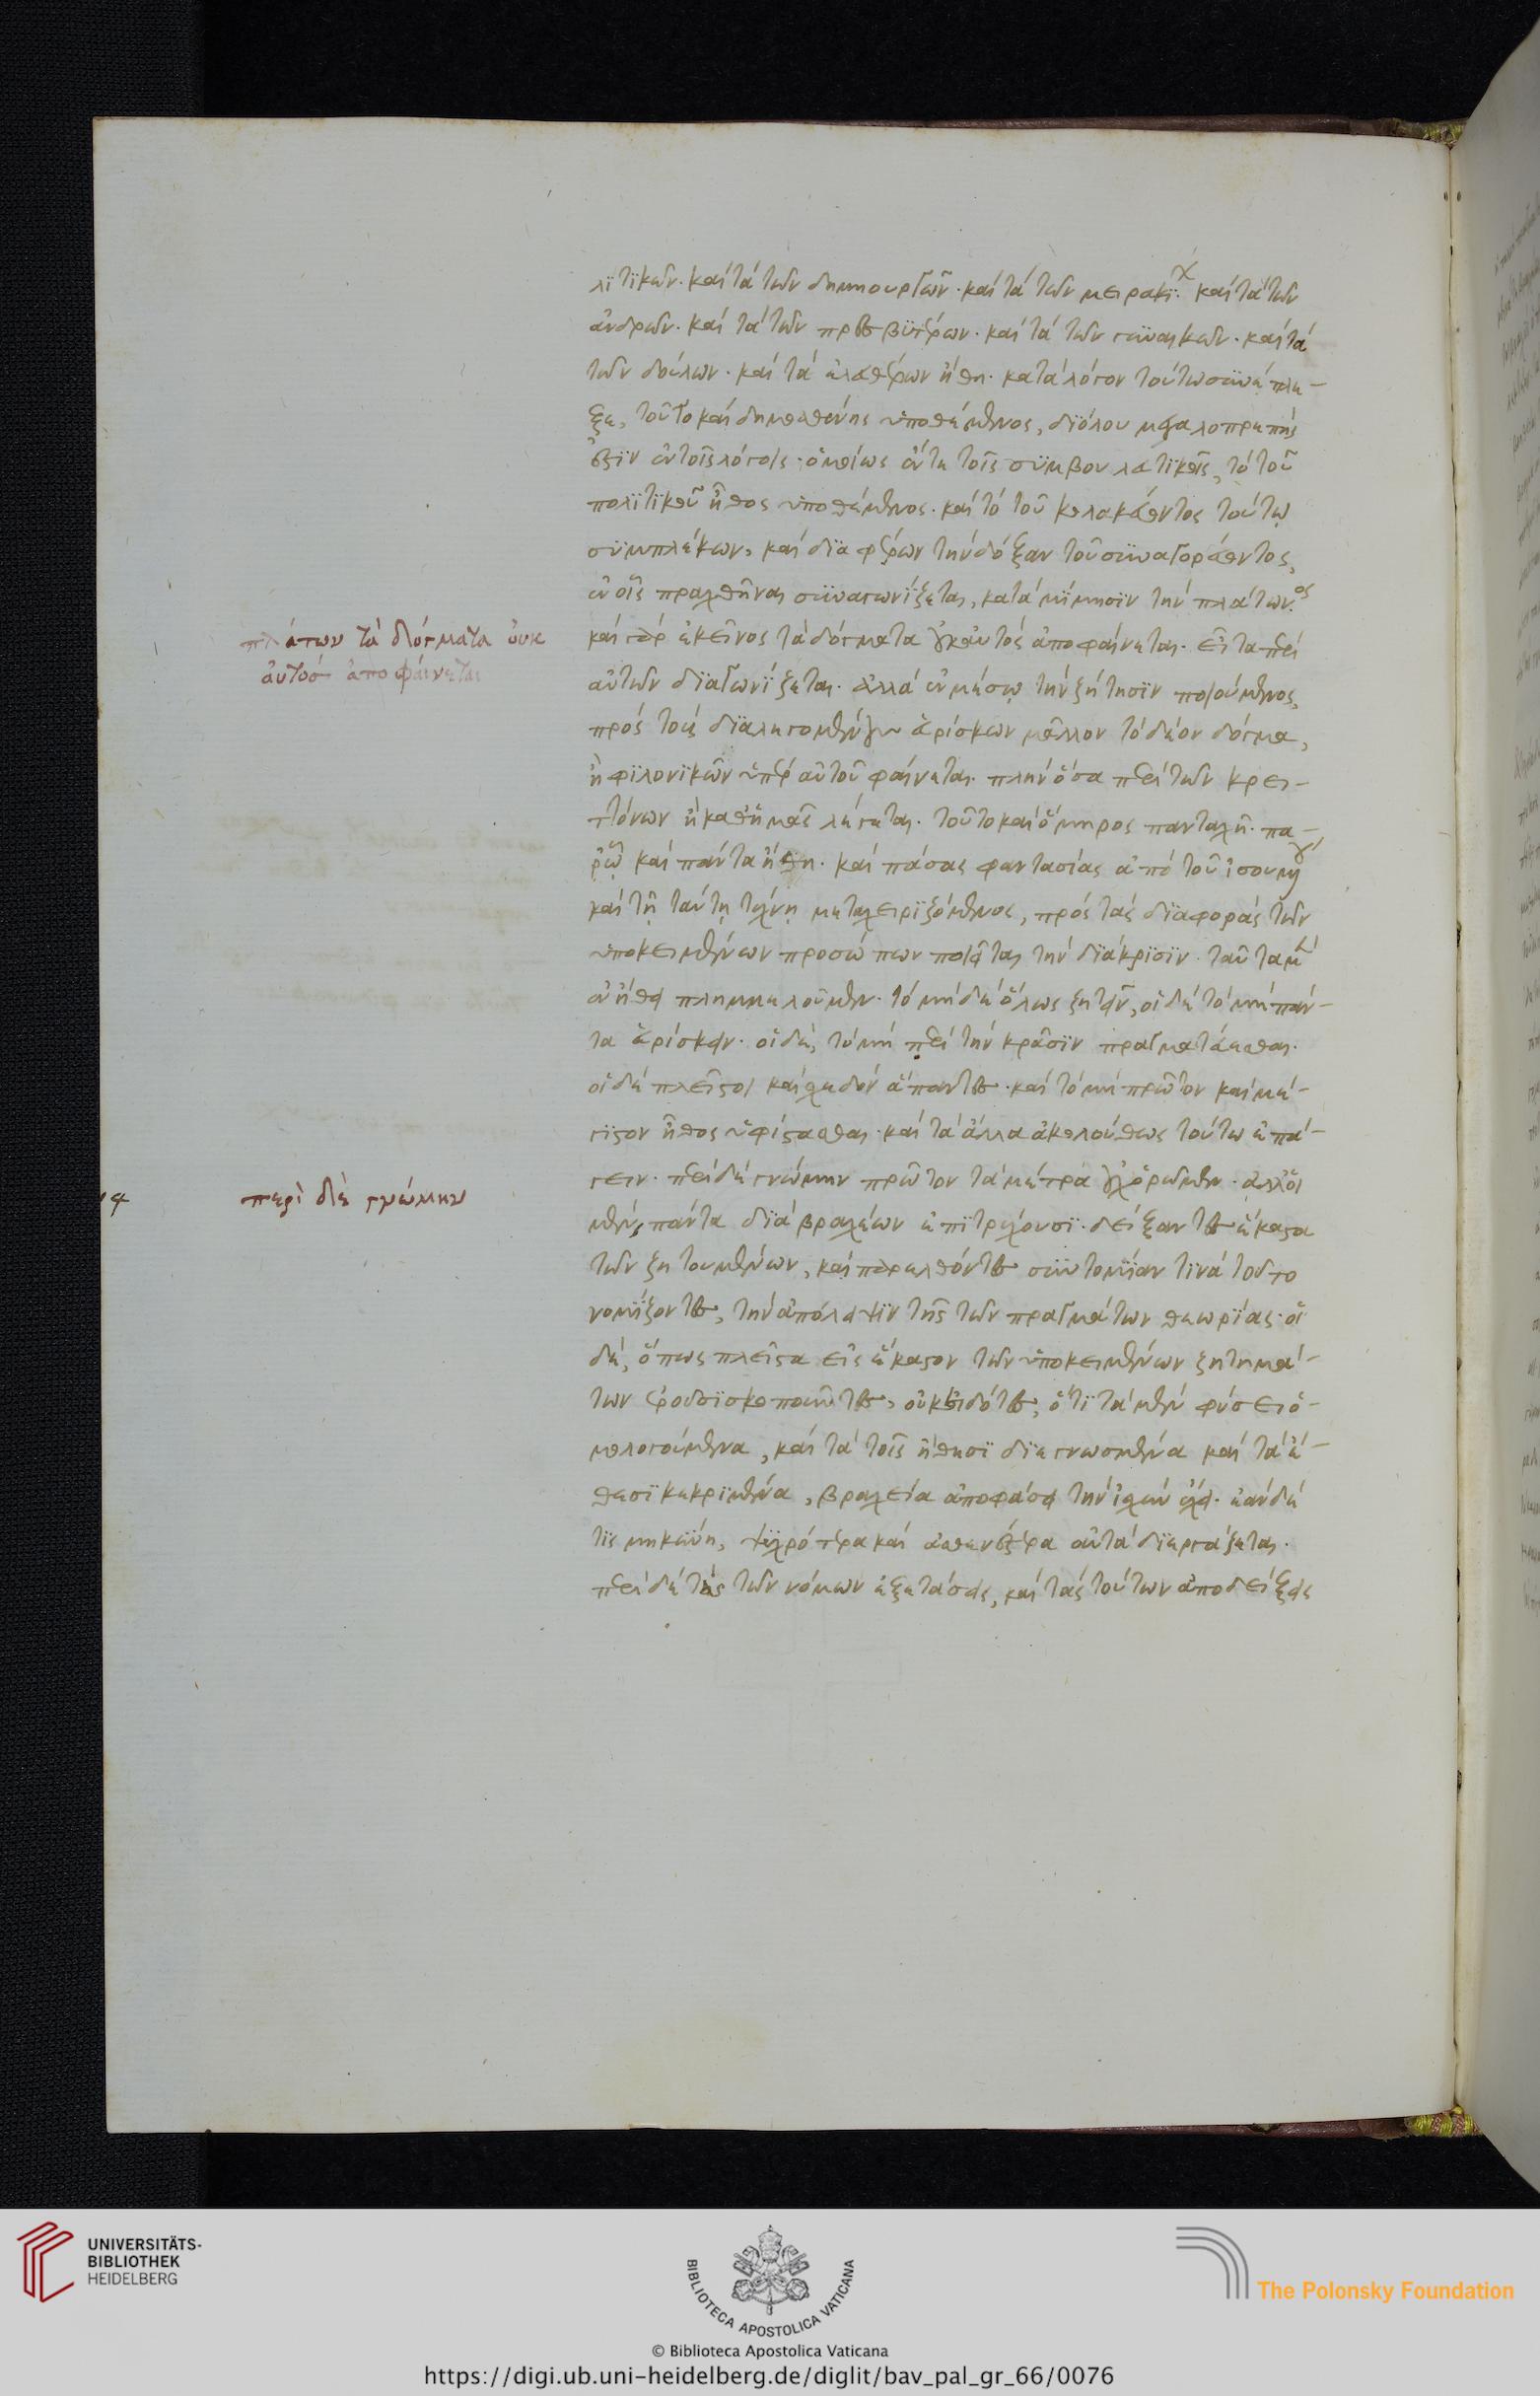 λϊτϊκῶν· καὶ τὰ τῶν δημιουργῶν· καὶ τὰ τῶν μειρακϊ· καὶ τὰ τῶν
ἀνδρῶν· καὶ τὰ τῶν πρεσβϋτέρων· καὶ τὰ τῶν γϋναικῶν· καὶ τὰ
τῶν δούλων· καὶ τὰ ἐλευθέρων ἤθη· κατὰ λόγον τούτω σϋνέπλε-
ξε, τοῦτο καὶ δημοσθένης ὑποθέμενος, δϊόλου μεγαλοπρεπής
ἐστϊν ἐν τοῖς λόγοις· ὁμοίως ἔν τε τοῖς σϋμβουλευτϊκοῖς, τὸ τοῦ
πολϊτϊκοῦ ἦθος ὑποθέμενος· καὶ τὸ τοῦ κολακεύοντος τούτῳ
σϋμπλέκων, καὶ δϊαφέρων τὴν δόξαν τοῦ σϋναγορεύοντος,
ἐν οἷς πραχθῆναι σϋναγωνίζεται, κατὰ μίμησϊν τὴν πλάτωνος
καὶ γὰρ ἐκεῖνος τὰ δόγματα οὐκ αὐτὸς ἀποφαίνεται· εἶτα περὶ
αὐτῶν δϊαγωνίζεται· ἀλλὰ ἐν μέσῳ τὴν ζήτησϊν ποιούμενος,
πρὸς τοὺς δϊαλεγομένους εὑρίσκων μᾶλλον τὸ δέον δόγμα,
ἢ φϊλονϊκῶν ὑπὲρ αὐτοῦ φαίνεται· πλὴν ὅσα περὶ τῶν κρει-
ττόνων ἢ καθ' ἡμᾶς λέγεται· τοῦτο καὶ ὅμηρος πανταχῆ· πα-
ρ' ᾧ καὶ πάντα ἤθη· καὶ πάσας φαντασίας ἀπὸ τοῦ ἴσου
καὶ τῇ ταύτῃ τέχνῃ μεταχειρϊζόμενος, πρὸς τὰς δϊαφορὰς τῶν
ὑποκειμένων προσώπων ποιεῖται τὴν δϊάκρϊσϊν· ταῦτα μὲν
ἐν ἤθει πλημμελοῦμεν· τὸ μηδὲ ὅλως ζητεῖν, οἱ δὲ τὸ μὴ πάν-
τα εὑρίσκειν· οἱ δὲ, τὸ μὴ περὶ τὴν κρᾶσϊν πραγματεύεσθαι·
οἱ δὲ πλεῖστοι καὶ σχεδὸν ἅπαντες· καὶ τὸ μὴ πρῶτον καὶ μέ-
γϊστον ἦθος ὑφίστασθαι· καὶ τὰ ἄλλα ἀκολούθως τούτω ἐπά-
γειν· περὶ δὲ γνώμην πρῶτον τὰ μέτρα οὐχ ὁρῶμεν· ἀλλ' οἱ
μὲν, πάντα δϊὰ βραχέων ἐπϊτρέχουσϊ· δείξαντες ἕκαστα
τῶν ζητουμένων, καὶ παρελθόντες σϋντομίαν τϊνὰ τοῦτο
νομίζοντες, τὴν ἀπόλειψϊν τῆς τῶν πραγμάτων θεωρίας· οἱ
δὲ, ὅπως πλεῖστα εἰς ἕκαστον τῶν ὑποκειμένων ζητημά-
των ἐροῦσϊ σκοποῦντες, οὐκ εἰδότες, ὅτϊ τὰ μὲν φύσει ὁ-
μολογούμενα, καὶ τὰ τοῖς ἤθεσϊ δϊεγνωσμένα καὶ τὰ ἔ-
θεσϊ κεκρϊμένα, βραχεία ἀποφάσει τὴν ἰσχὺν ἔχει· ἐὰν δέ
τϊς μηκύνῃ, ψϋχρότερα καὶ ἀσθενέστερα αὐτὰ δϊεργάζεται·
περὶ δὲ τὰς τῶν νόμων ἐξετάσεις, καὶ τὰς τούτων ἀποδείξεις
πλάτων τὰ δόγματα οὐκ
αὐτὸσ ἀποφάινεται
περὶ δὲ γνώμην
UNIVERSITÄTS-
BIBLIOTHEK
HEIDELBERG
BIBLIOTECA APOSTOLICA VATICANA
The Polonsky Foundation
© Biblioteca Apostolica Vaticana
https://digi.ub.uni-heidelberg.de/diglit/bav_pal_gr_66/0076